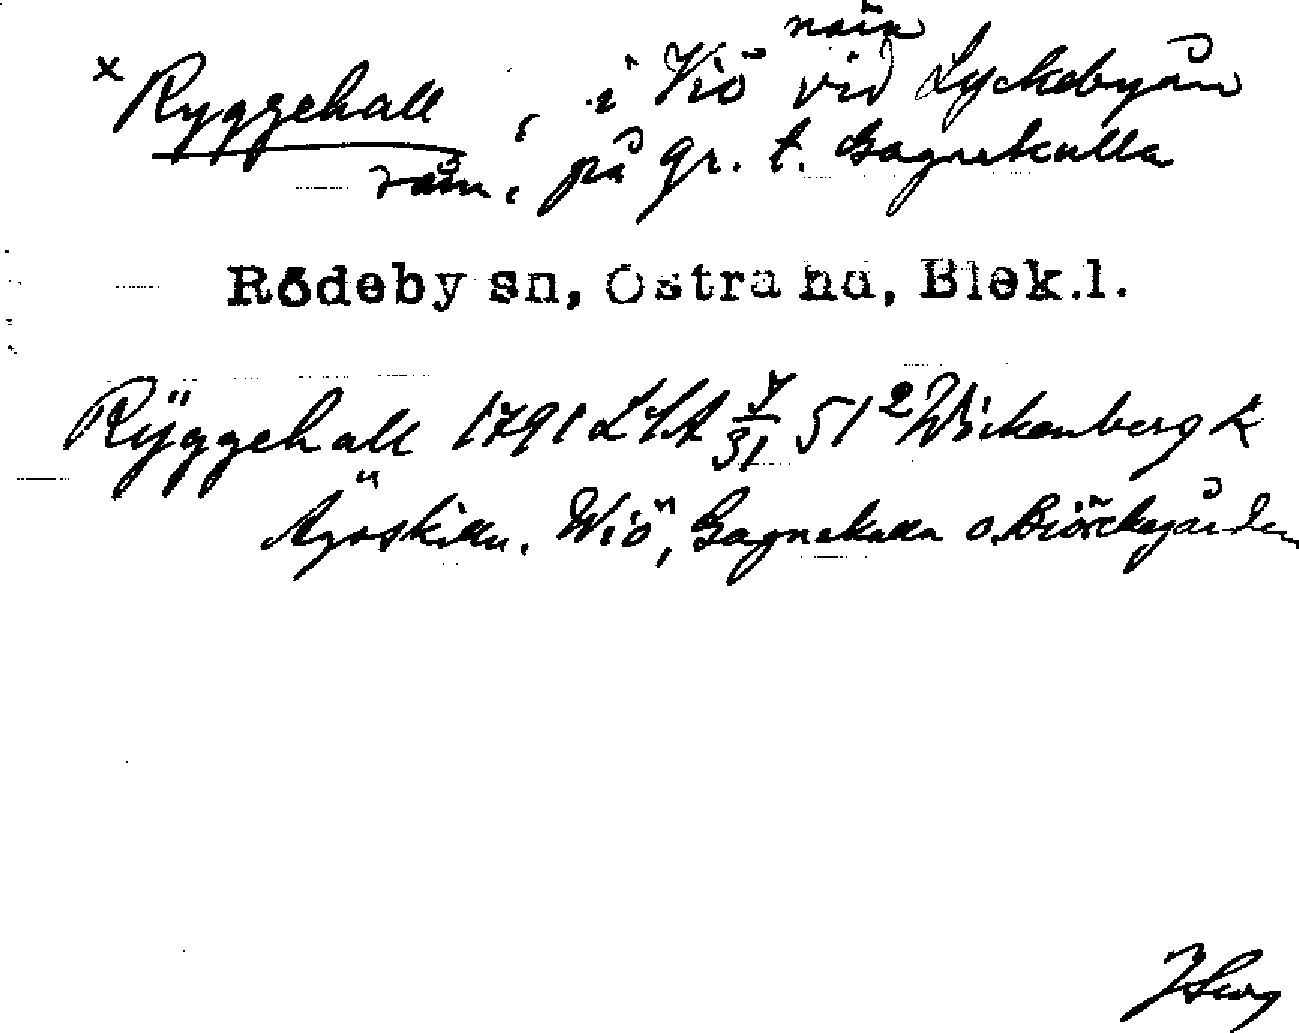 nära
× Ryggehall, i Viö vid Lyckebyån
råm., på gr. t. Gagnekulla
Rödeby sn, Östra hd, Blek.l.
Rÿggehall 1791 LSA 51² Wickenberg k
Ägoskilln. Wiö, Gagnekulla o. Biörckegården